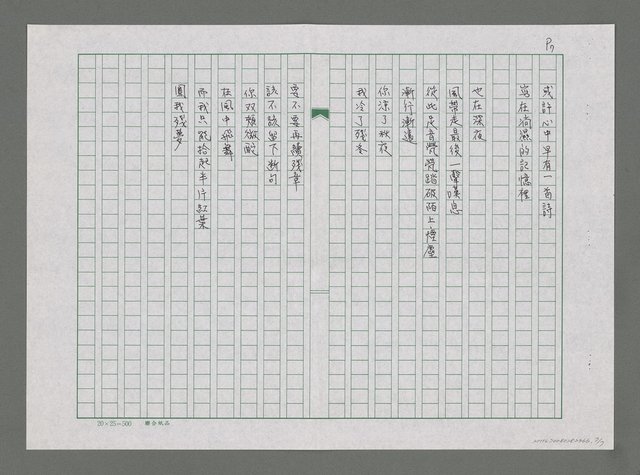 P7
或許心中早有一首詩
寫在滴濕的記憶裡
也在深夜
風帶走最後一聲嘆息
從此足音甍甍踏破陌上煙塵
漸行漸遠
你涼了秋夜
我冷了殘冬
要不要再續殘章
該不該留下斷句
你双頰微酡
在風中飛舞
而我只能拾起半片紅葉
圓我殘夢
20×25=500 聯合紙品